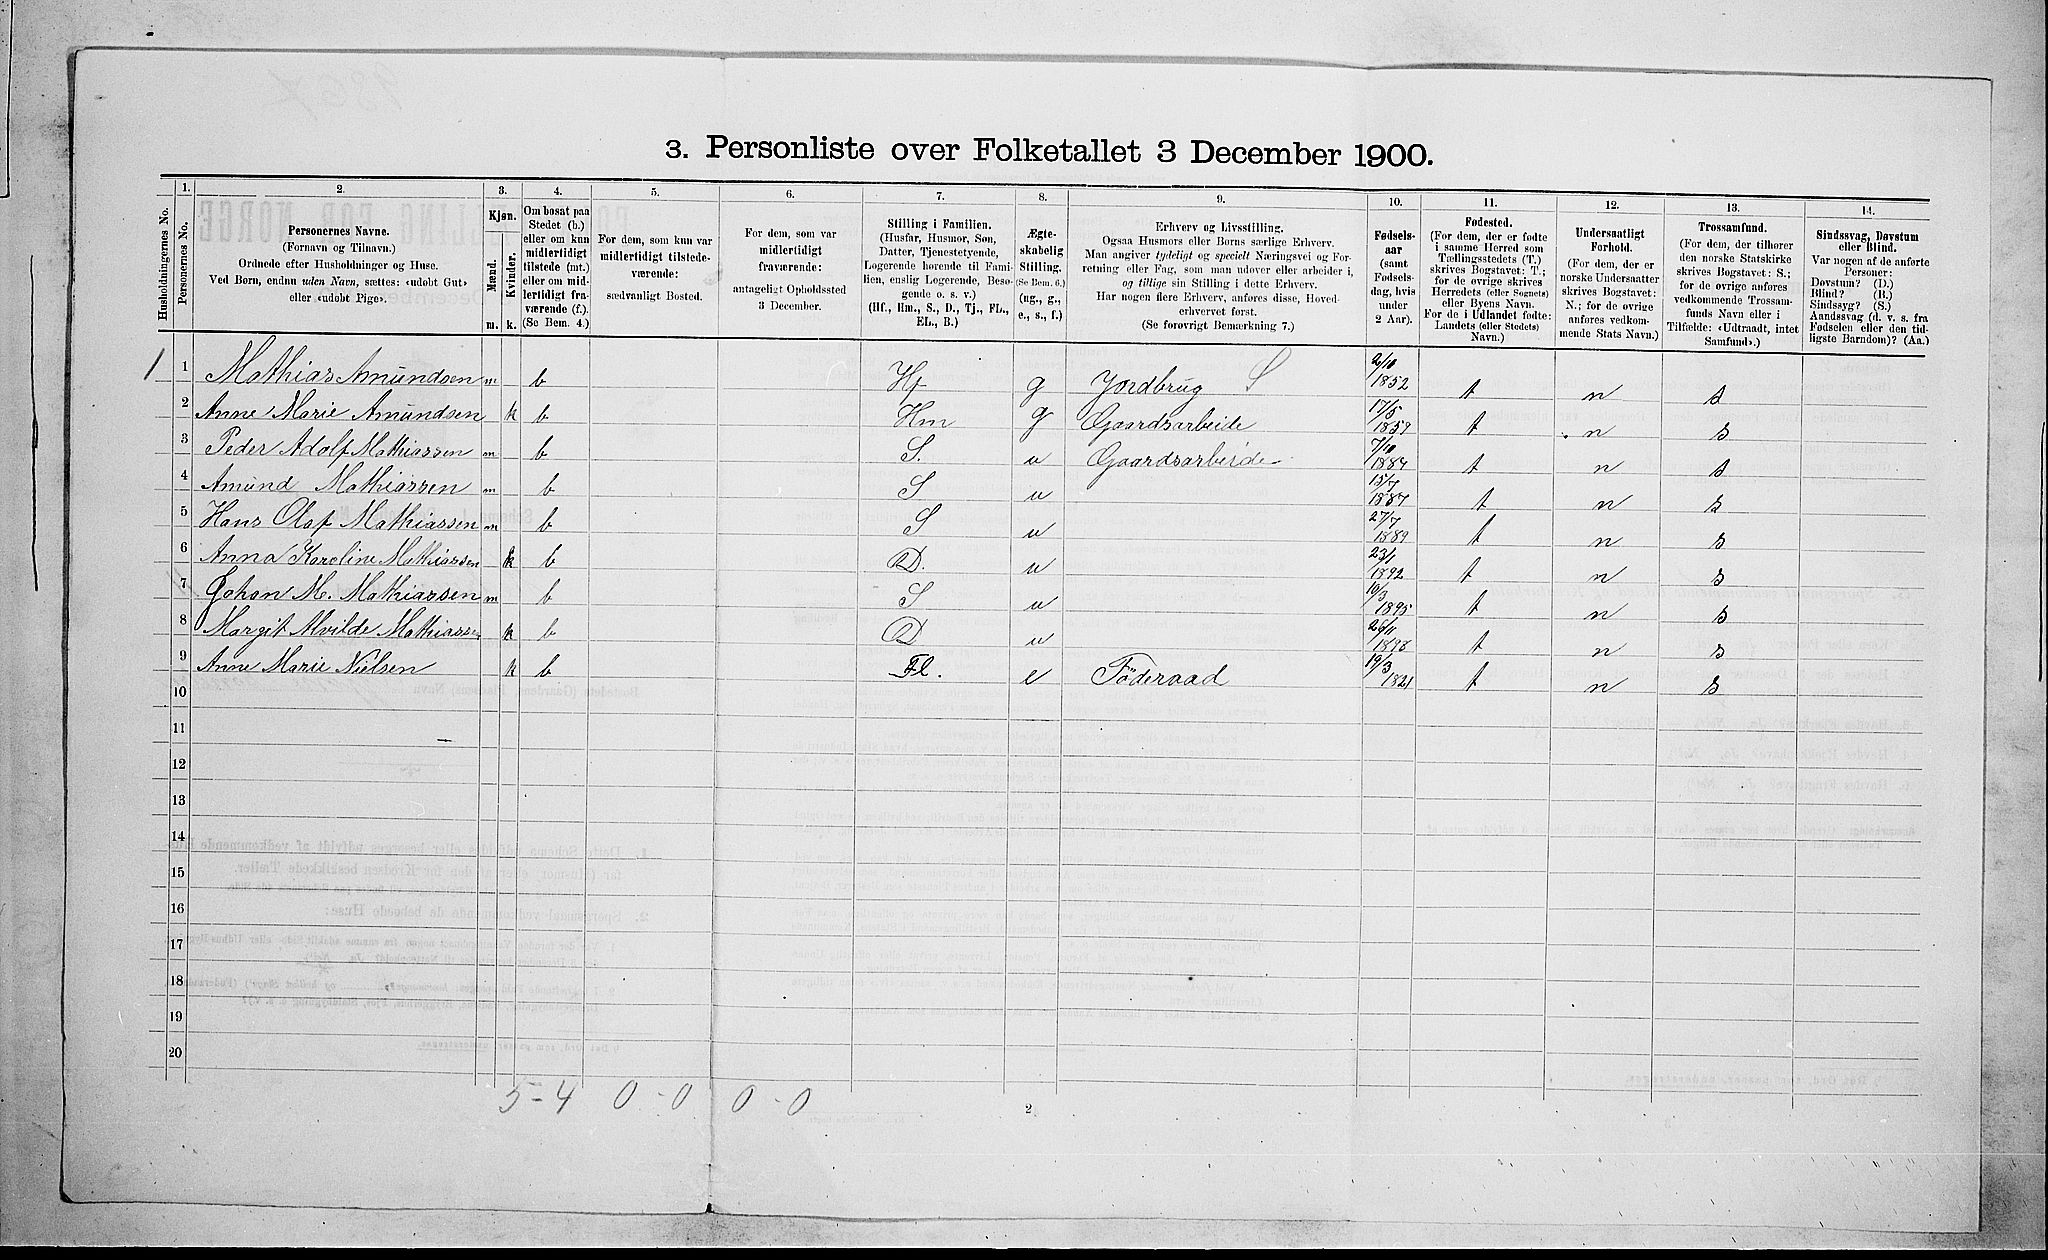 3. Personliste over Folketallet 3 December 1900.
1. 2. 3. 4. 5. 6. 7. 8. 9. 10. 11. 12. 13. 14.
Husholdningernes No.
Personernes No.
Personernes Navne.
(Fornavn og Tilnavn.)
Ordnede efter Husholdninger og Huse.
Ved Børn, endnu uden Navn, sættes: «udøbt Gut»
eller «udøbt Pige».
Kjøn.
Mænd.
Kvinder.
m. k.
Om bosat paa
Stedet (b.)
eller om kun
midlertidigt
tilstede (mt.)
eller om mid-
lertidigt fra-
værende (f.).
(Se Bem. 4.)
For dem, som kun var
midlertidigt tilstede-
værende:
sædvanligt Bosted.
For dem, som var
midlertidigt
fraværende:
antageligt Opholdssted
3 December.
Stilling i Familien.
(Husfar, Husmor, Søn,
Datter, Tjenestetyende,
Logerende hørende til Fami-
lien, enslig Logerende, Besø-
gende o. s. v.)
(Hf., Hm., S., D., Tj., FL.,
EL., B.)
Ægte-
skabelig
Stilling.
(Se Bem. 6.)
(ug., g.,
e., s., f.)
Erhverv og Livsstilling.
Ogsaa Husmors eller Børns særlige Erhverv.
Man angiver tydeligt og specielt Næringsvei og For-
retning eller Fag, som man udøver eller arbeider i,
og tillige sin Stilling i dette Erhverv.
Har nogen flere Erhverv, anføres disse, Hoved-
erhvervet først.
(Se forøvrigt Bemærkning 7.)
Fødsels-
aar
(samt
Fødsels-
dag, hvis
under
2 Aar).
Fødested.
(For dem, der er fødte
i samme Herred som
Tællingsstedets (T.)
skrives Bogstavet: T.;
for de øvrige skrives
Herredets (eller Sognets)
eller Byens Navn.
For de i Udlandet fødte:
Landets (eller Stedets)
Navn.)
Undersaatligt
Forhold.
(For dem, der er
norske Undersaatter
skrives Bogstavet:
N.; for de øvrige
anføres vedkom-
mende Stats Navn.)
Trossamfund.
(For dem, der tilhører
den norske Statskirke
skrives Bogstavet: S.;
for de øvrige anføres
vedkommende Trossam-
funds Navn eller i
Tilfælde: «Udtraadt, intet
Samfund».)
Sindssvag, Døvstum
eller Blind.
Var nogen af de anførte
Personer:
Døvstum? (D.)
Blind? (B.)
Sindssyg? (S.)
Aandssvag (d. v. s. fra
Fødselen eller den tid-
ligste Barndom)? (Aa.)
1 1 Mathias Amundsen m b Hf g Jordbrug S 26/10 1852 t n s
2 Anne Marie Amundsen k b Hm g Gaardsarbeide 17/5 1859 t n s
3 Peder Adolf Mathiassen m b S. u Gaardsarbeide 7/10 1884 t n s
4 Amund Mathiassen m b S u 15/7 1887 t n s
5 Hans Olaf Mathiassen m b S u 27/7 1889 t n s
6 Anna Karoline Mathiassen k b D. u 23/1 1892 t n s
7 Johan M. Mathiassen m b S u 10/3 1895 t n s
8 Margit Alvilde Mathiassen k b D u 26/11 1898 t n s
9 Anne Marie Nielsen k b Fl. e Föderaad 19/3 1821 t n s
10
11
12
13
14
15
16
17
18
19
20
5-4 0-0 0-0
2